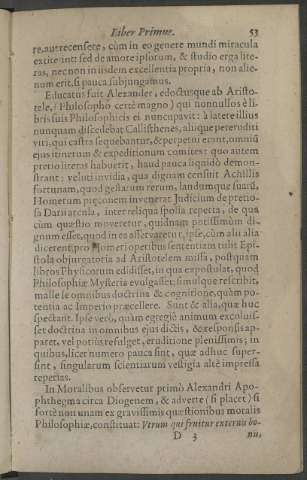 Liber Primus. 53
re, aut recensere, cùm in eo genere mundi miracula
extiterint: sed de amore ipsorum, & studio erga lite-
ras, nec non in iisdem excellentia propria, non alie-
num erit, si pauca subjungamus.
Educatus fuit Alexander, edoctusque ab Aristo-
tele, (Philosopho certè magno) qui nonnullos è li-
bris suis Philosophicis ei nuncupavit: à latere illius
nunquam discedebat Callisthenes, aliique pereruditi
viri, qui castra sequebantur, & perpetui erant, omniū
ejus itinerum & expeditionum comites: quo autem
pretio literas habuerit, haud pauca liquidò demon-
strant: veluti invidia, qua dignam censuit Achillis
fortunam, quod gestarum rerum, laudumque suarū,
Homerum præconem invenerat. Judicium de pretio-
sa Darii arcula, inter reliqua spolia reperta, de qua
cùm quæstio moveretur, quidnam potissimùm di-
gnum esset, quod in ea asservaretur, ipse, cùm alii alia
dicerent, pro Homeri operibus sententiam tulit. Epi-
stola objurgatoria ad Aristotelem missa, postquam
libros Physicorum edidisset, in qua expostulat, quod
Philosophiæ Mysteria evulgasset; simulque rescribit,
malle se omnibus doctrina & cognitione, quàm po-
tentia ac Imperio præcellere. Sunt & alia, quæ huc
spectant. Ipse verò, quàm egregiè animum excoluis-
set doctrina in omnibus ejus dictis, & responsis ap-
paret, vel potiùs refulget, eruditione plenissimis; in
quibus, licet numero pauca sint, quæ adhuc super-
sint, singularum scientiarum vestigia altè impressa
reperias.
In Moralibus observetur primò Alexandri Apo-
phthegma circa Diogenem, & adverte (si placet) si
fortè non unam ex gravissimis quæstionibus moralis
Philosophiæ, constituat: Utrum qui fruitur externis bo-
D 3 nis,